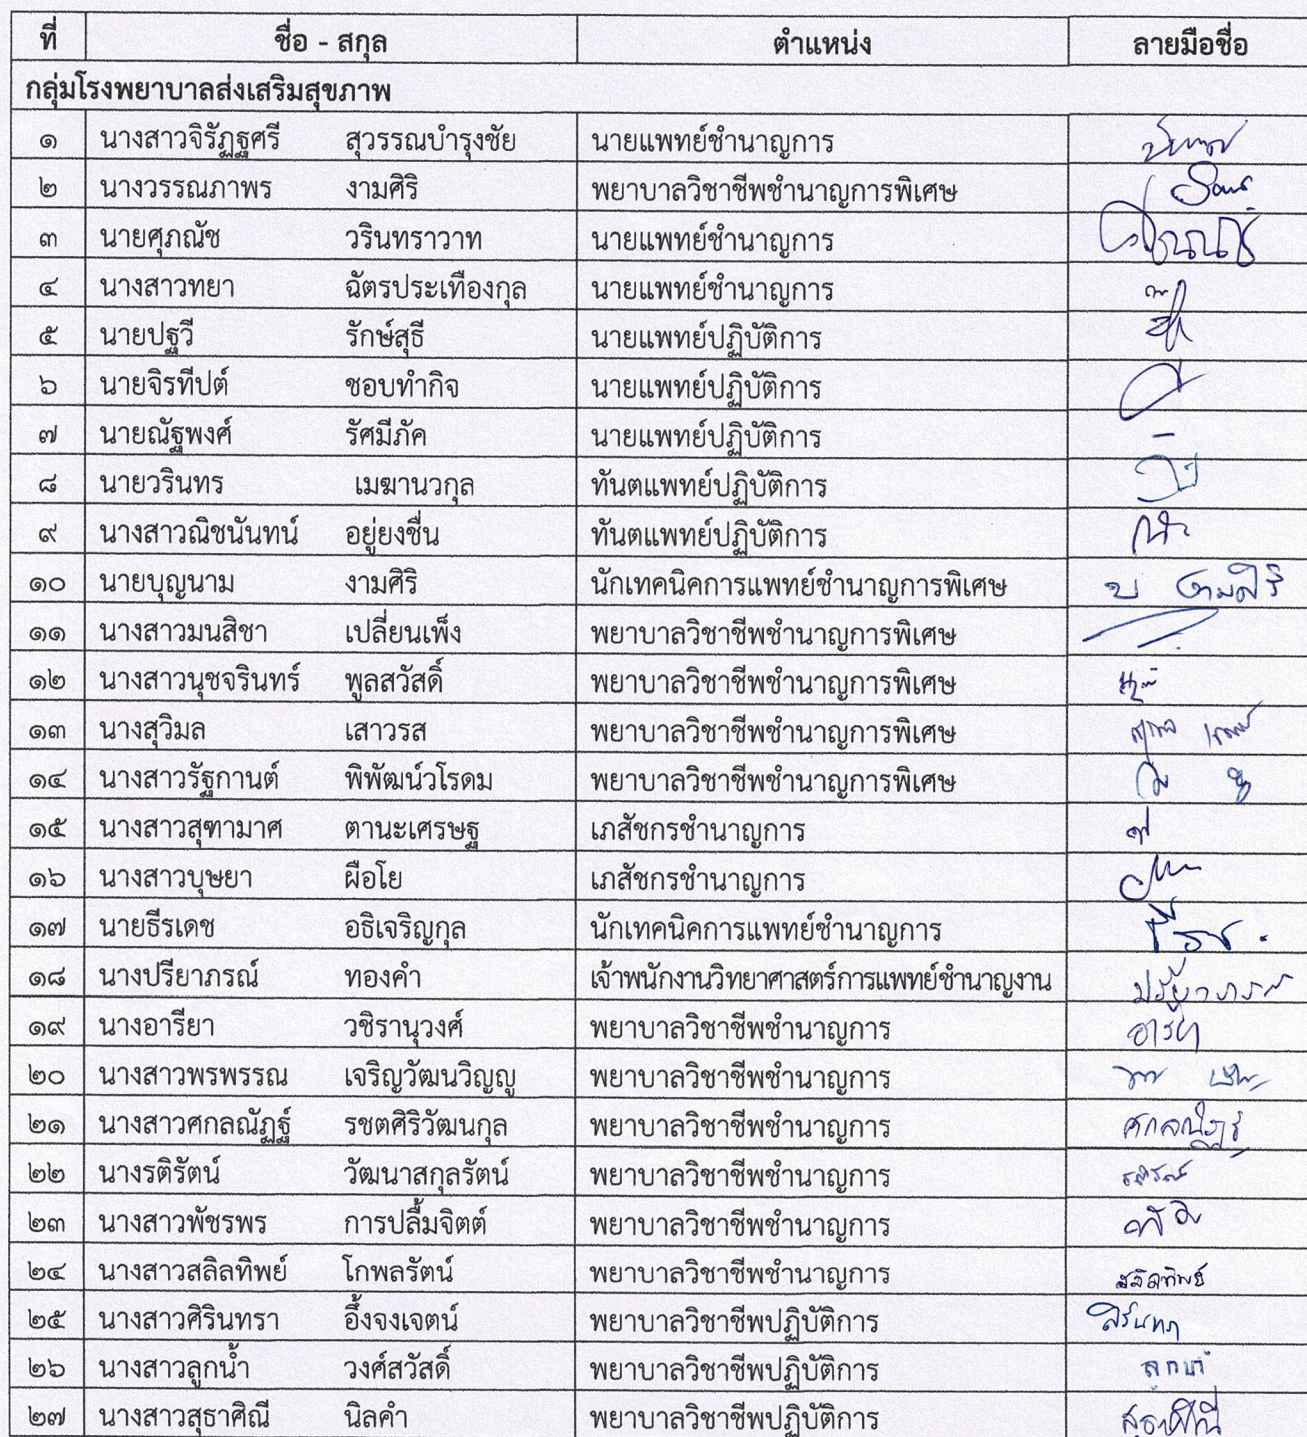 ที่ ชื่อ - สกุล ตำแหน่ง ลายมือชื่อ
กลุ่มโรงพยาบาลส่งเสริมสุขภาพ
๑ นางสาวจิรัฏฐศรี สุวรรณบำรุงชัย นายแพทย์ชำนาญการ
๒ นางวรรณภาพร งามศิริ พยาบาลวิชาชีพชำนาญการพิเศษ
๓ นายศุภณัช วรินทราวาท นายแพทย์ชำนาญการ
๔ นางสาวทยา ฉัตรประเทืองกุล นายแพทย์ชำนาญการ
๕ นายปฐวี รักษ์สุธี นายแพทย์ปฏิบัติการ
๖ นายจิรทีปต์ ชอบทำกิจ นายแพทย์ปฏิบัติการ
๗ นายณัฐพงศ์ รัศมีภัค นายแพทย์ปฏิบัติการ -
๘ นายวรินทร เมฆานวกุล ทันตแพทย์ปฏิบัติการ
๙ นางสาวณิชนันทน์ อยู่ยงชื่น ทันตแพทย์ปฏิบัติการ
๑๐ นายบุญนาม งามศิริ นักเทคนิคการแพทย์ชำนาญการพิเศษ บ งามศิริ
๑๑ นางสาวมนสิชา เปลี่ยนเพ็ง พยาบาลวิชาชีพชำนาญการพิเศษ
๑๒ นางสาวนุชจรินทร์ พูลสวัสดิ์ พยาบาลวิชาชีพชำนาญการพิเศษ
๑๓ นางสุวิมล เสาวรส พยาบาลวิชาชีพชำนาญการพิเศษ
๑๔ นางสาวรัฐกานต์ พิพัฒน์วโรดม พยาบาลวิชาชีพชำนาญการพิเศษ
๑๕ นางสาวสุฑามาศ ตานะเศรษฐ เภสัชกรชำนาญการ
๑๖ นางสาวบุษยา ผือโย เภสัชกรชำนาญการ
๑๗ นายธีรเดช อธิเจริญกุล นักเทคนิคการแพทย์ชำนาญการ
๑๘ นางปรียาภรณ์ ทองคำ เจ้าพนักงานวิทยาศาสตร์การแพทย์ชำนาญงาน ปรียาภรณ์
๑๙ นางอารียา วชิรานุวงศ์ พยาบาลวิชาชีพชำนาญการ อารียา
๒๐ นางสาวพรพรรณ เจริญวัฒนวิญญู พยาบาลวิชาชีพชำนาญการ
๒๑ นางสาวศกลณัฏฐ์ รชตศิริวัฒนกุล พยาบาลวิชาชีพชำนาญการ ศกลณัฏฐ์
๒๒ นางรติรัตน์ วัฒนาสกุลรัตน์ พยาบาลวิชาชีพชำนาญการ รติรัตน์
๒๓ นางสาวพัชรพร การปลื้มจิตต์ พยาบาลวิชาชีพชำนาญการ
๒๔ นางสาวสลิลทิพย์ โกพลรัตน์ พยาบาลวิชาชีพชำนาญการ สลิลทิพย์
๒๕ นางสาวศิรินทรา อึ้งจงเจตน์ พยาบาลวิชาชีพปฏิบัติการ ศิรินทรา
๒๖ นางสาวลูกน้ำ วงศ์สวัสดิ์ พยาบาลวิชาชีพปฏิบัติการ ลูกน้ำ
๒๗ นางสาวสุธาศิณี นิลคำ พยาบาลวิชาชีพปฏิบัติการ สุธาศิณี